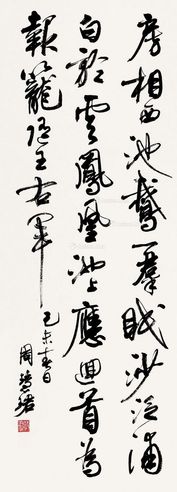 房相西池鵝一羣眠沙泛浦
白於雲鳳凰池上應迴首為
報籠隨王右軍
己未春日
周慧珺